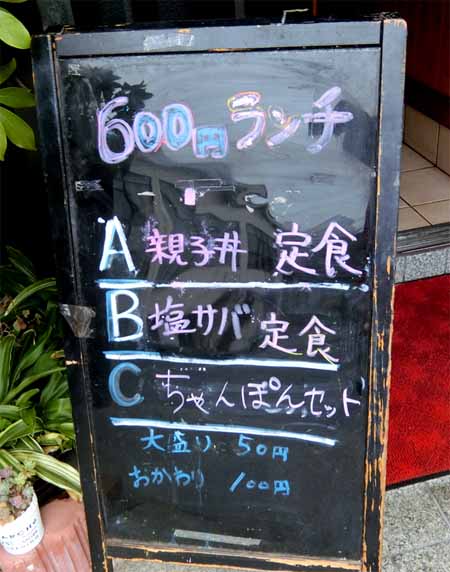 600円ランチ
A 親子丼 定食
B 塩サバ 定食
C ぢゃんぽんセット
大盛り 50円
おかわり 100円